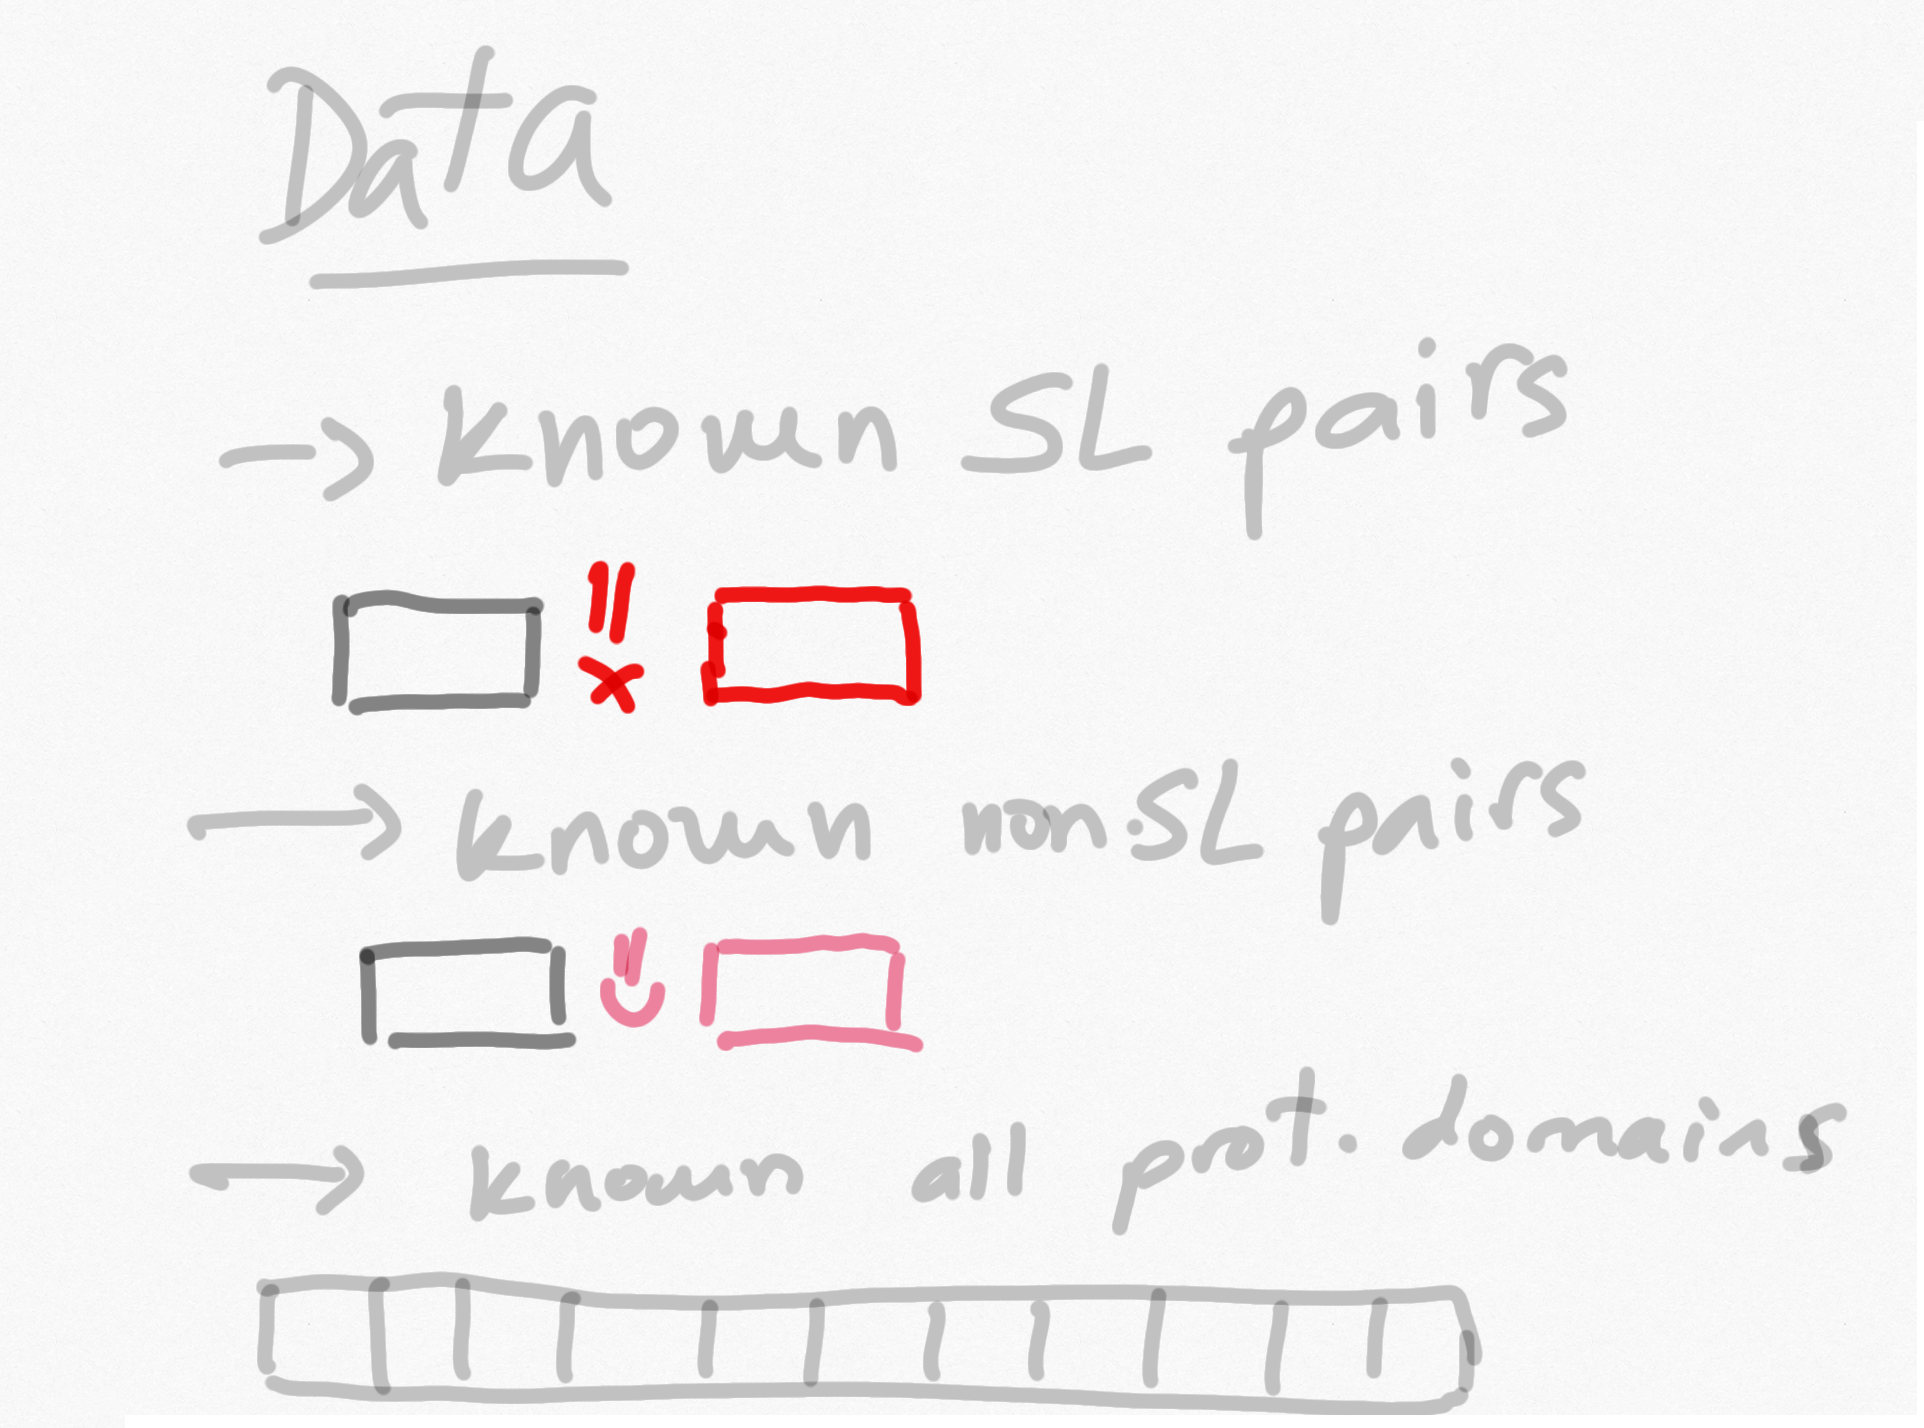 Data
→ known SL pairs
→ known non-SL pairs
→ known all prot. domains